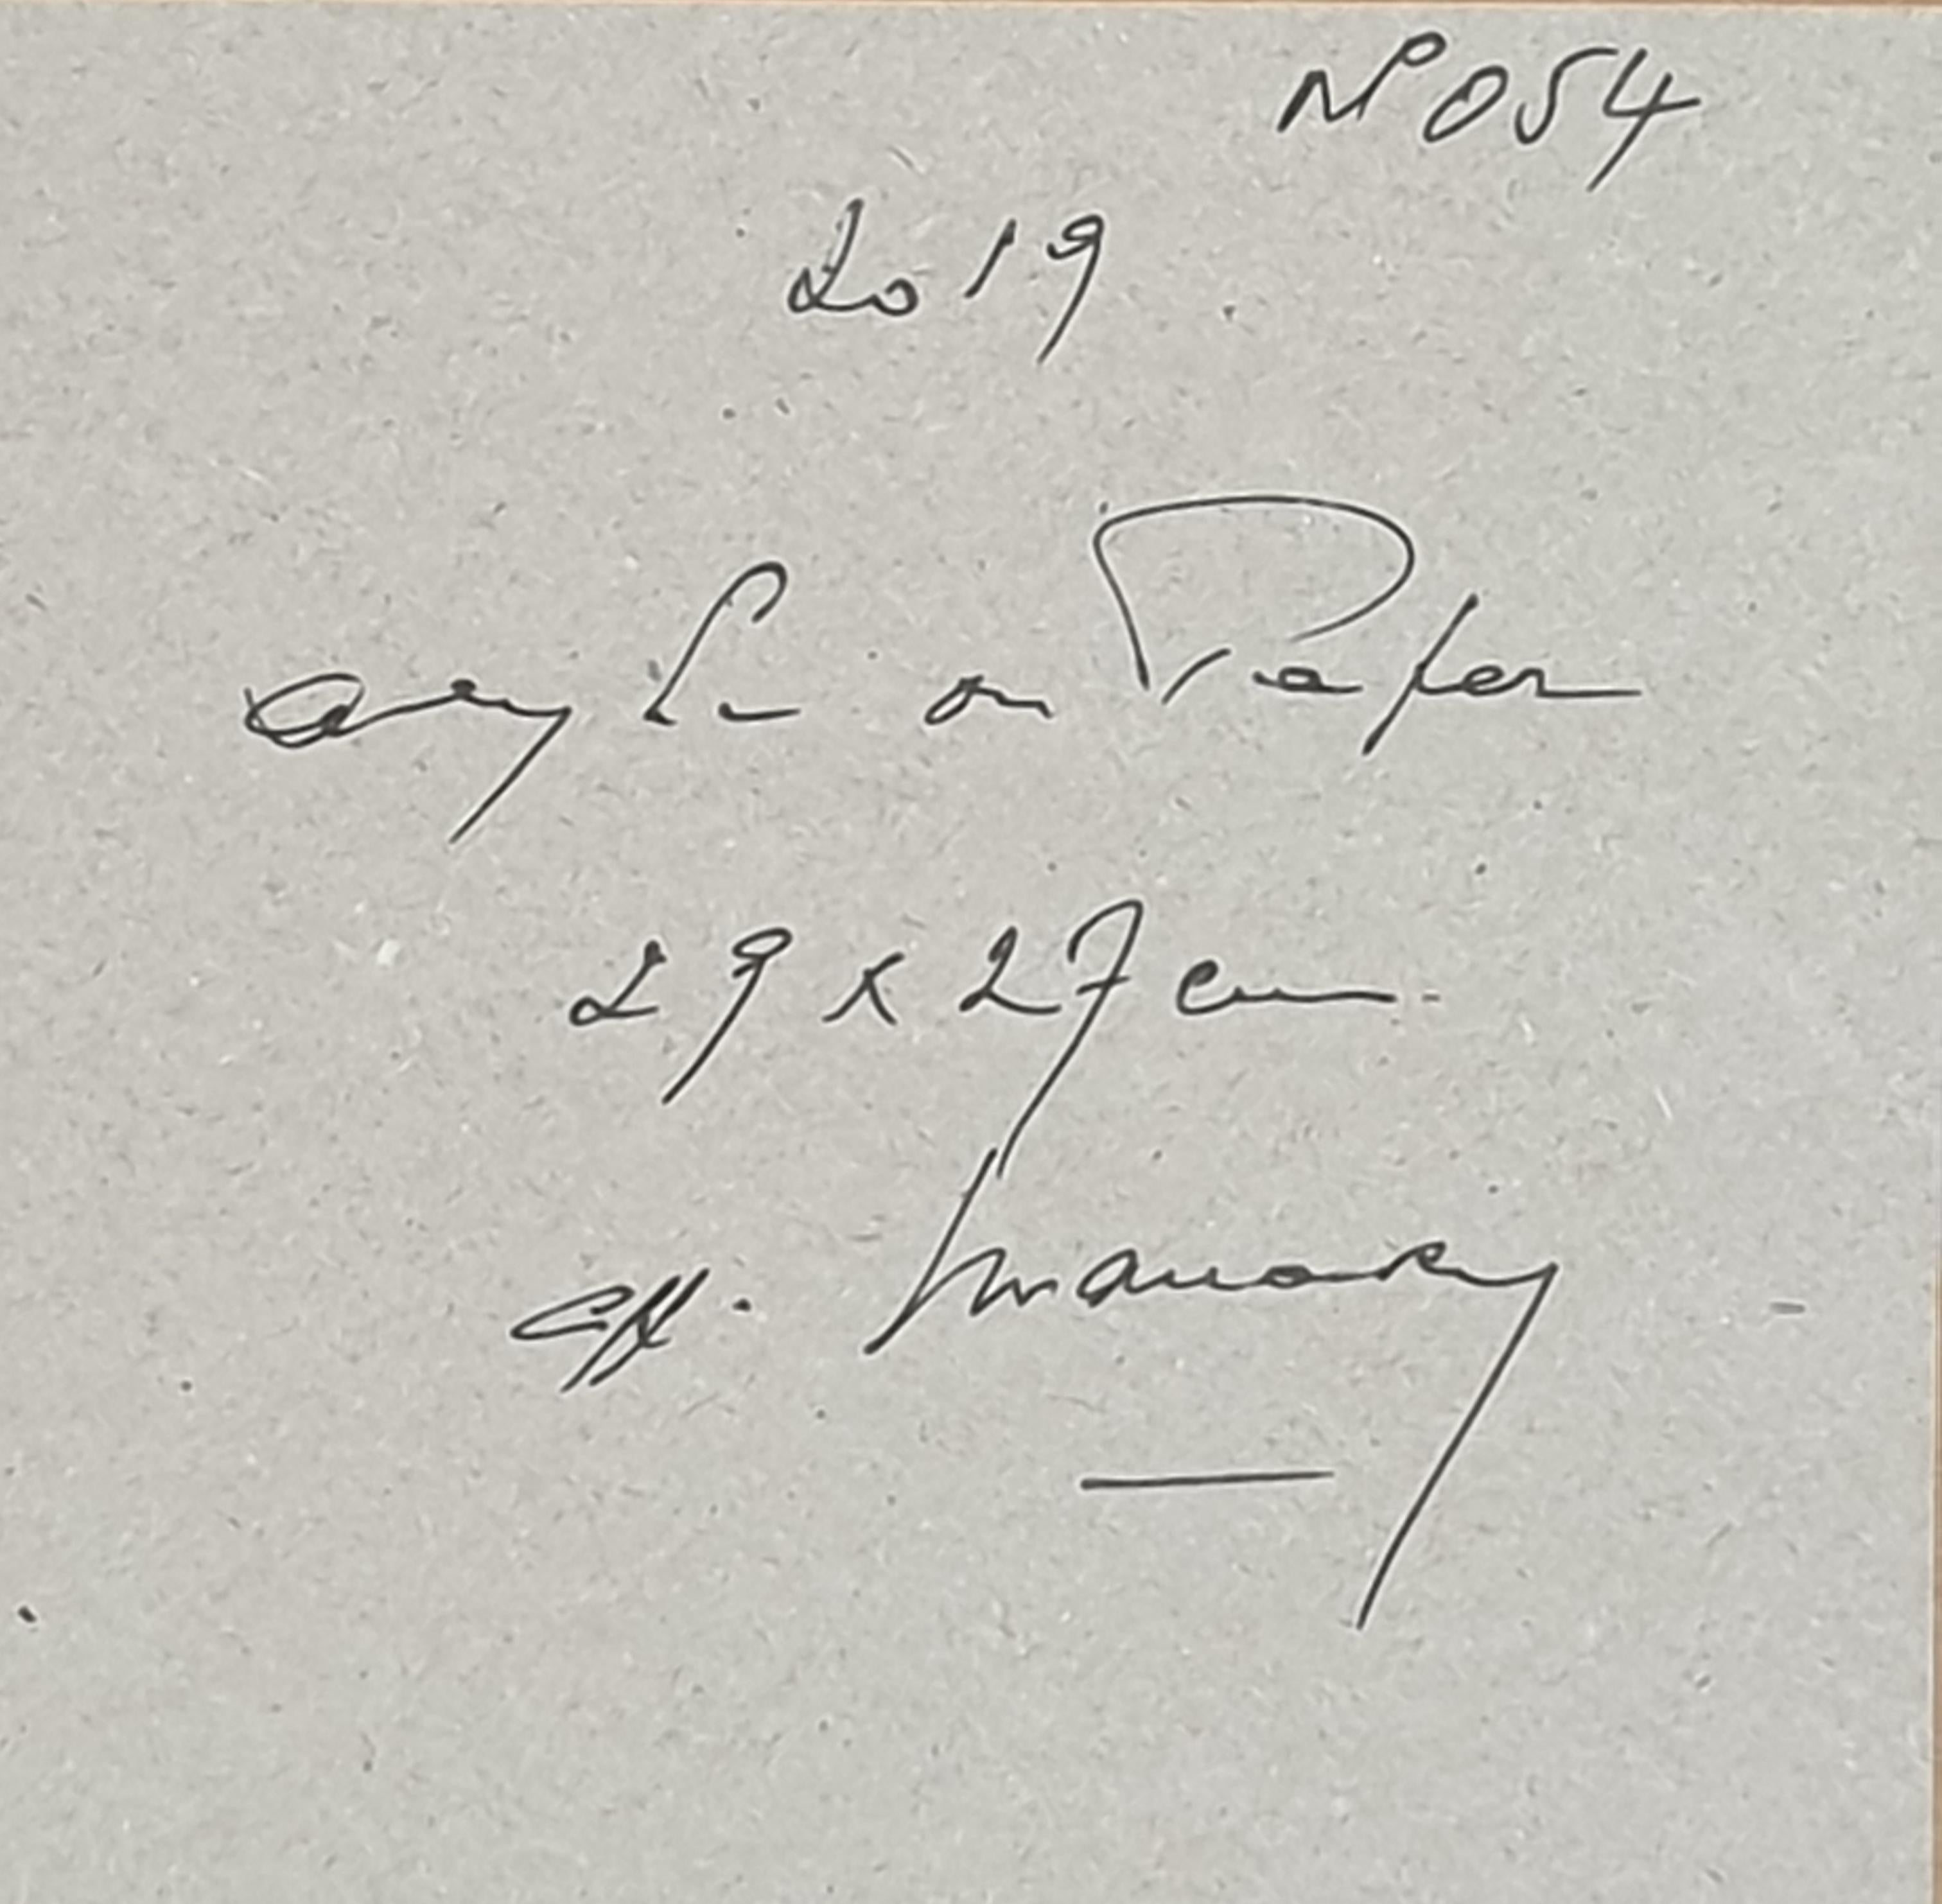 N° 054
2019
acrylic on Paper
29 x 27 cm